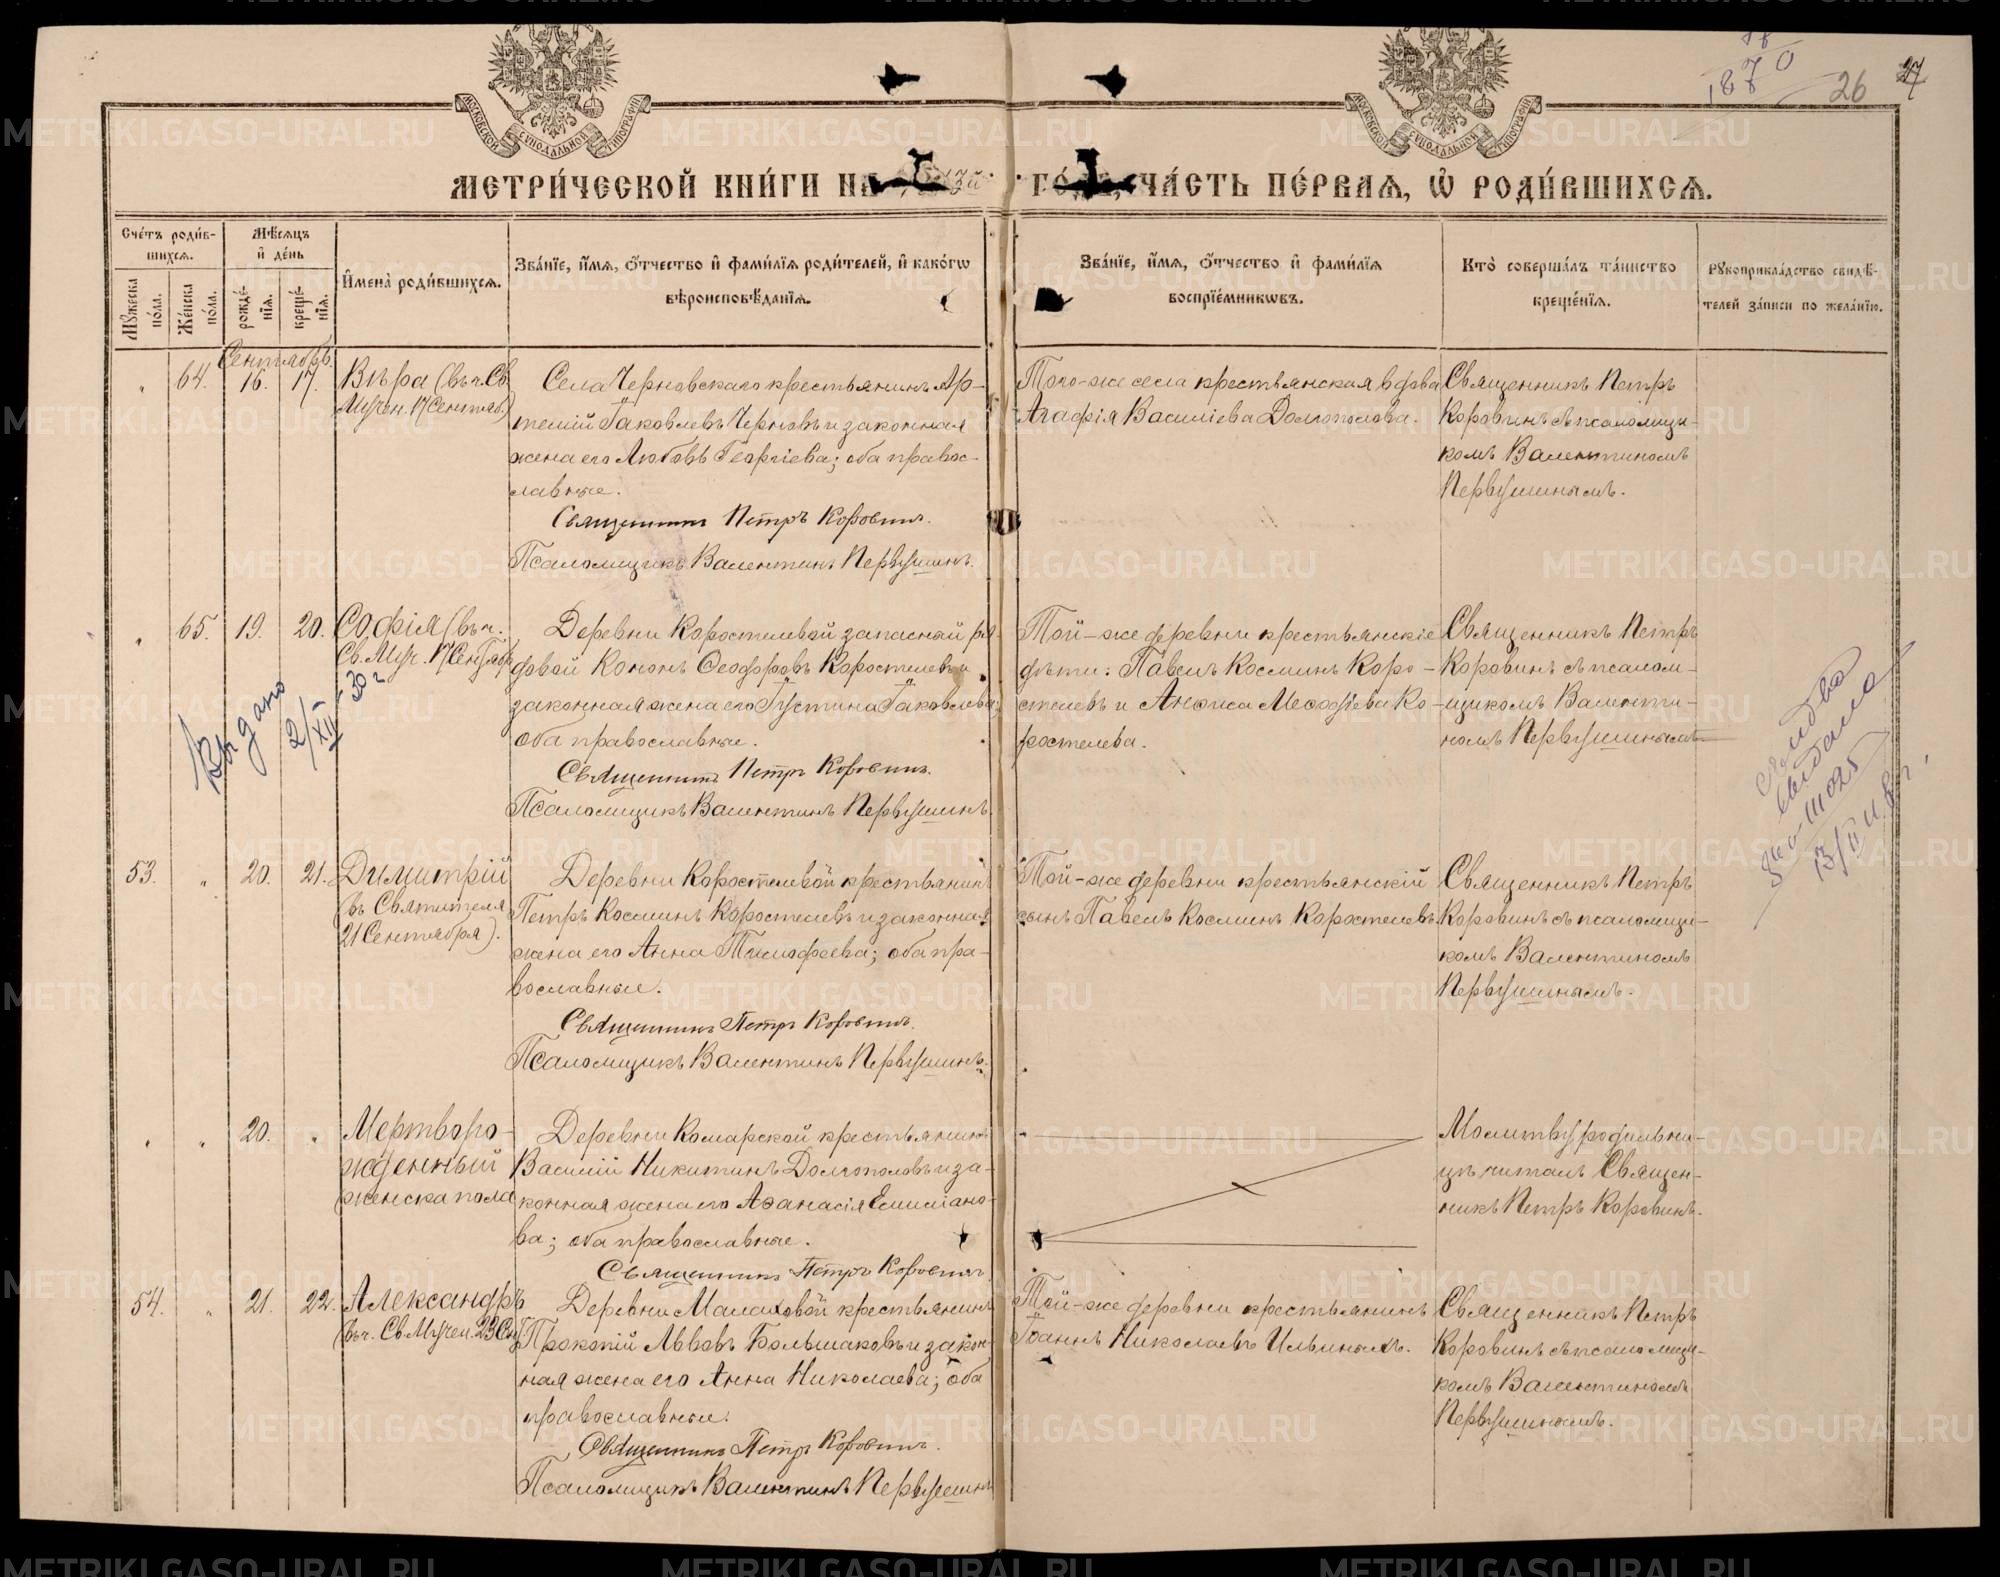 26
27
МЕТРИ́ЧЕСКОЙ КНИ́ГИ НА ГО́ДЪ, ЧА́СТЬ ПЕ́РВАѦ, Ѡ҆ РОДИ́ВШИХСѦ.
Сче́тъ роди́в-
шихсѧ.
Мѣсѧцъ
и҆ де́нь
Мꙋжеска по́ла.
Же́нска по́ла.
рожде́-нїѧ.
креще́-нїѧ.
И҆мена̀ роди́вшихсѧ.
Зва́нїе, и҆́мѧ, ѻ҆́тчество и҆ фами́лїѧ роди́телей, и҆ како́гѡ
вѣроисповѣ́данїѧ.
Зва́нїе, и҆́мѧ, ѻ҆́тчество и҆ фами́лїѧ
воспрїе́мникѡвъ.
Кто̀ соверша́лъ та́инство
креще́нїѧ.
Рꙋкоприкла́дство свидѣ́-
телей за́писи по жела́нїю.
Сентябрь
64. 16. 17.
Вѣра (въ ч. Св.
Мучен. 17 Сентяб.)
Села Черновскаго крестьянинъ Ар-
темій Іаковлевъ Черновъ и законная
жена его Любовь Георгіева; оба правос-
лавные.
Священникъ Петръ Коровинъ.
Псаломщикъ Валентинъ Первушинъ.
Того-же села крестьянская вдова
Агафія Василіева Долгополова.
Священникъ Петръ
Коровинъ съ псаломщи-
комъ Валентиномъ
Первушинымъ.
65. 19. 20.
Софія (въ ч.
Св. Муч. 17 Сентябр.
Деревни Коростелевой запасный ря-
довой Кононъ Ѳеодоровъ Коростелевъ и
законная жена его Іустина Іаковлева;
оба православные.
Священникъ Петръ Коровинъ.
Псаломщикъ Валентинъ Первушинъ.
Той-же деревни крестьянскіе
дѣти: Павелъ Косминъ Коро-
стелевъ и Анѳиса Меѳодіева Ко-
ростелева.
Священникъ Петръ
Коровинъ съ псалом-
щикомъ Валенти-
номъ Первушинымъ
Выдано
2/XII-30 г
53. 20. 21.
Димитрій
(въ Святителя
21 Сентября).
Деревни Коростелевой крестьянинъ
Петръ Косминъ Коростелевъ и законная
жена его Анна Тимофеева; оба пра-
вославные.
Священникъ Петръ Коровинъ.
Псаломщикъ Валентинъ Первушинъ.
Той-же деревни крестьянскій
сынъ Павелъ Косминъ Коростелевъ.
Священникъ Петръ
Коровинъ съ псаломщи-
комъ Валентиномъ
Первушинымъ.
20.
Мертворо-
жденный
женска пола
Деревни Комарской крестьянинъ
Василій Никитинъ Долгополовъ и за-
конная жена его Аѳанасія Емиліано-
ва; оба православные.
Священникъ Петръ Коровинъ
Молитву родильни-
цѣ читалъ Священ-
никъ Петръ Коровинъ.
54. 21. 22.
Александръ
(въ ч. Св. Мучен. 23 Сен
Деревни Малаховой крестьянинъ
Прокопій Львовъ Большаковъ и закон-
ная жена его Анна Николаева; оба
православные.
Священникъ Петръ Коровинъ.
Псаломщикъ Валентинъ Первушинъ
Той-же деревни крестьянинъ
Іоаннъ Николаевъ Ильиныхъ.
Священникъ Петръ
Коровинъ съ псаломщи-
комъ Валентиномъ
Первушинымъ.
METRIKI.GASO-URAL.RU